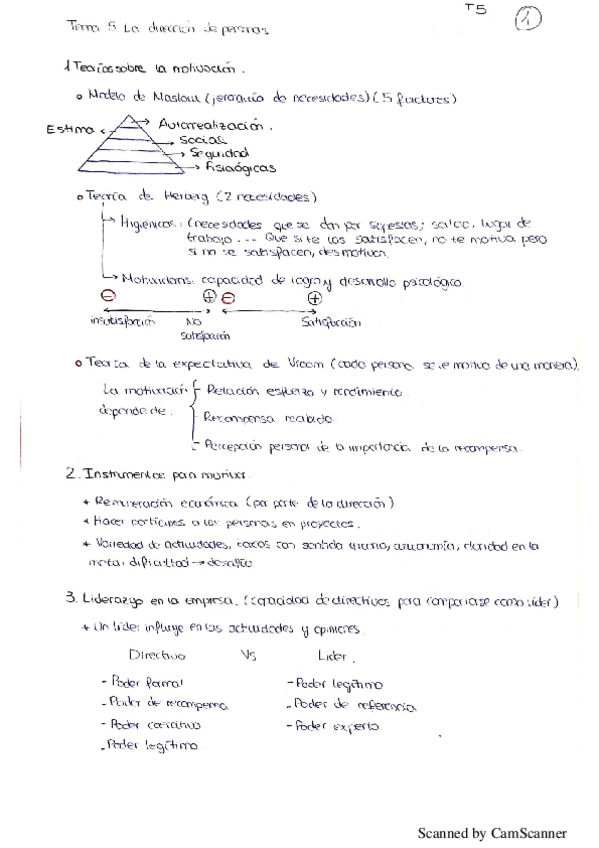 T5
1
Tema 5 La dirección de personas
1 Teorías sobre la motivación.
Modelo de Maslow (jerarquía de necesidades) (5 factores)
Estima
Autorrealización.
Social
Seguridad
Fisiológicas
Teoría de Herberg (2 necesidades)
Higiénicos: (necesidades que se dan por supestas; salario, lugar de
trabajo... Que si te las satisfacen, no te motiva pero
si no se satisfacen, desmotivan.
Motivadores: capacidad de logro y desarrollo psicológico.
⊖ ⊕ ⊖ ⊕
insatisfacción No satisfacción Satisfacción
Teoría de la expectativa de Vroom (cada persona se le motiva de una manera).
La motivación depende de:
Relación esfuerzo y rendimiento
Recompensa recibida
Percepción personal de la importancia de la recompensa.
2. Instrumentos para motivar.
+ Remuneración económica (por parte de la dirección)
+ Hacer partícipes a las personas en proyectos.
+ Variedad de actividades, tareas con sentido, autonomía, claridad en la
meta, dificultad → desafío
3. Liderazgo en la empresa. (capacidad de directivos para comportarse como líder)
+ Un líder influye en las actividades y opiniones.
Directivo Vs Lider.
- Poder formal - Poder legítimo
- Poder de recompensa - Poder de referencia
- Poder coercitivo - Poder experto.
- Poder legítimo
Scanned by CamScanner